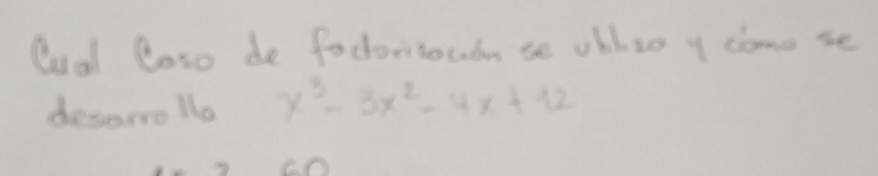 Cual Caso de factorización se utilizo y cómo se
desarrollo x³ - 3x² - 4x + 12